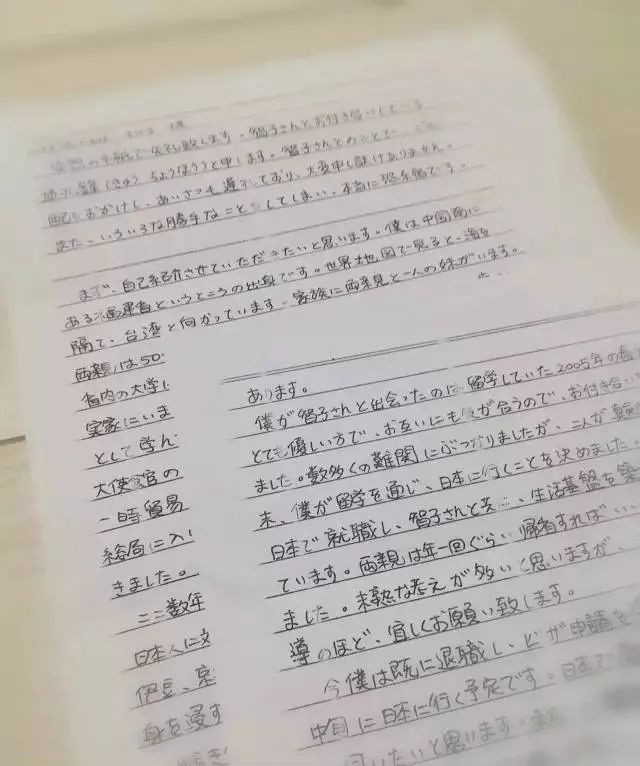 突然の手紙で失礼致します。智子さんとお付き合いしている
(きゅう ちょうほう)と申します。智子さんとのことで
おかけし、あいさつも遅れており、大変申し訳けありません。
また、いろいろな勝手なことをしてしまい、本当に恐縮です。
まず、自己紹介させていただきたいと思います。僕は中国南に
ある福建省というところの出身です。世界地図で見ると、海を
隔て、台湾と向かっています。家族に両親と一人の妹がいます。
両親は50
省内の大学に
実家にいま
として学ん
大使館の
一時貿易
総局に入
きました。
ここ数年
日本人に
伊豆、
身を浸す
あります。
僕が智子さんと出会ったのは留学していた2005年の春
とても優しい方で、お互いにも気が合うので、お付き合い
ました。数多くの難関にぶつかりましたが、二人が
末、僕が留学を通じ、日本に行くことを決めました。
日本で就職し、智子さんと共 生活基盤を築
ています。両親は年一回ぐらい帰省すればい
ました。未熟な考えが多いと思いますが、
導のほど、宜しくお願い致します。
今僕は既に退職し、ビザ申請を
中旬に日本に行く予定です。日本で
伺いたいと思います。また